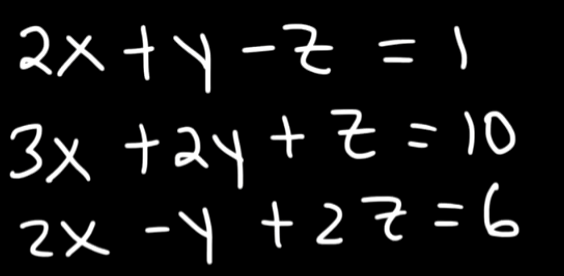 2x + y - z = 1
3x + 2y + z = 10
2x - y + 2z = 6